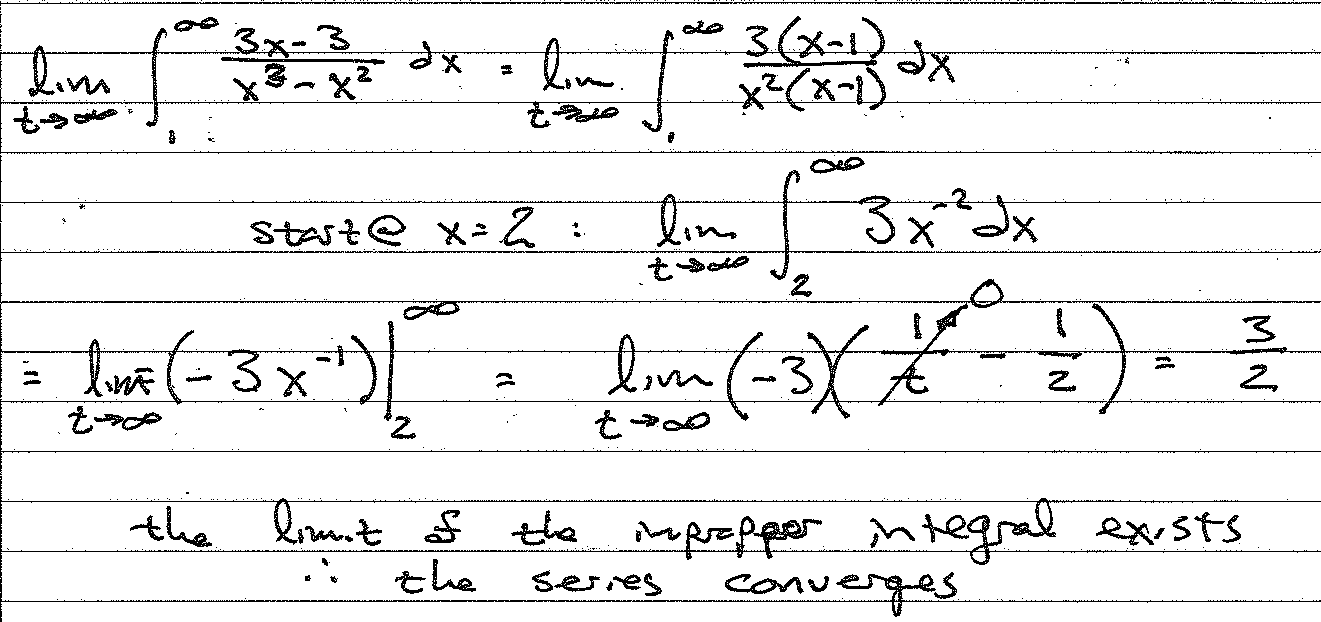 lim t→∞ ∫₁^∞ (3x-3)/(x³-x²) dx = lim t→∞ ∫₁^∞ 3(x-1)/(x²(x-1)) dx
start @ x=2 : lim t→∞ ∫₂^∞ 3x⁻² dx
= lim t→∞ (-3x⁻¹)|₂^∞ = lim t→∞ (-3)(1/t → 0 - 1/2) = 3/2
the limit of the impropper integral exists
∴ the series converges